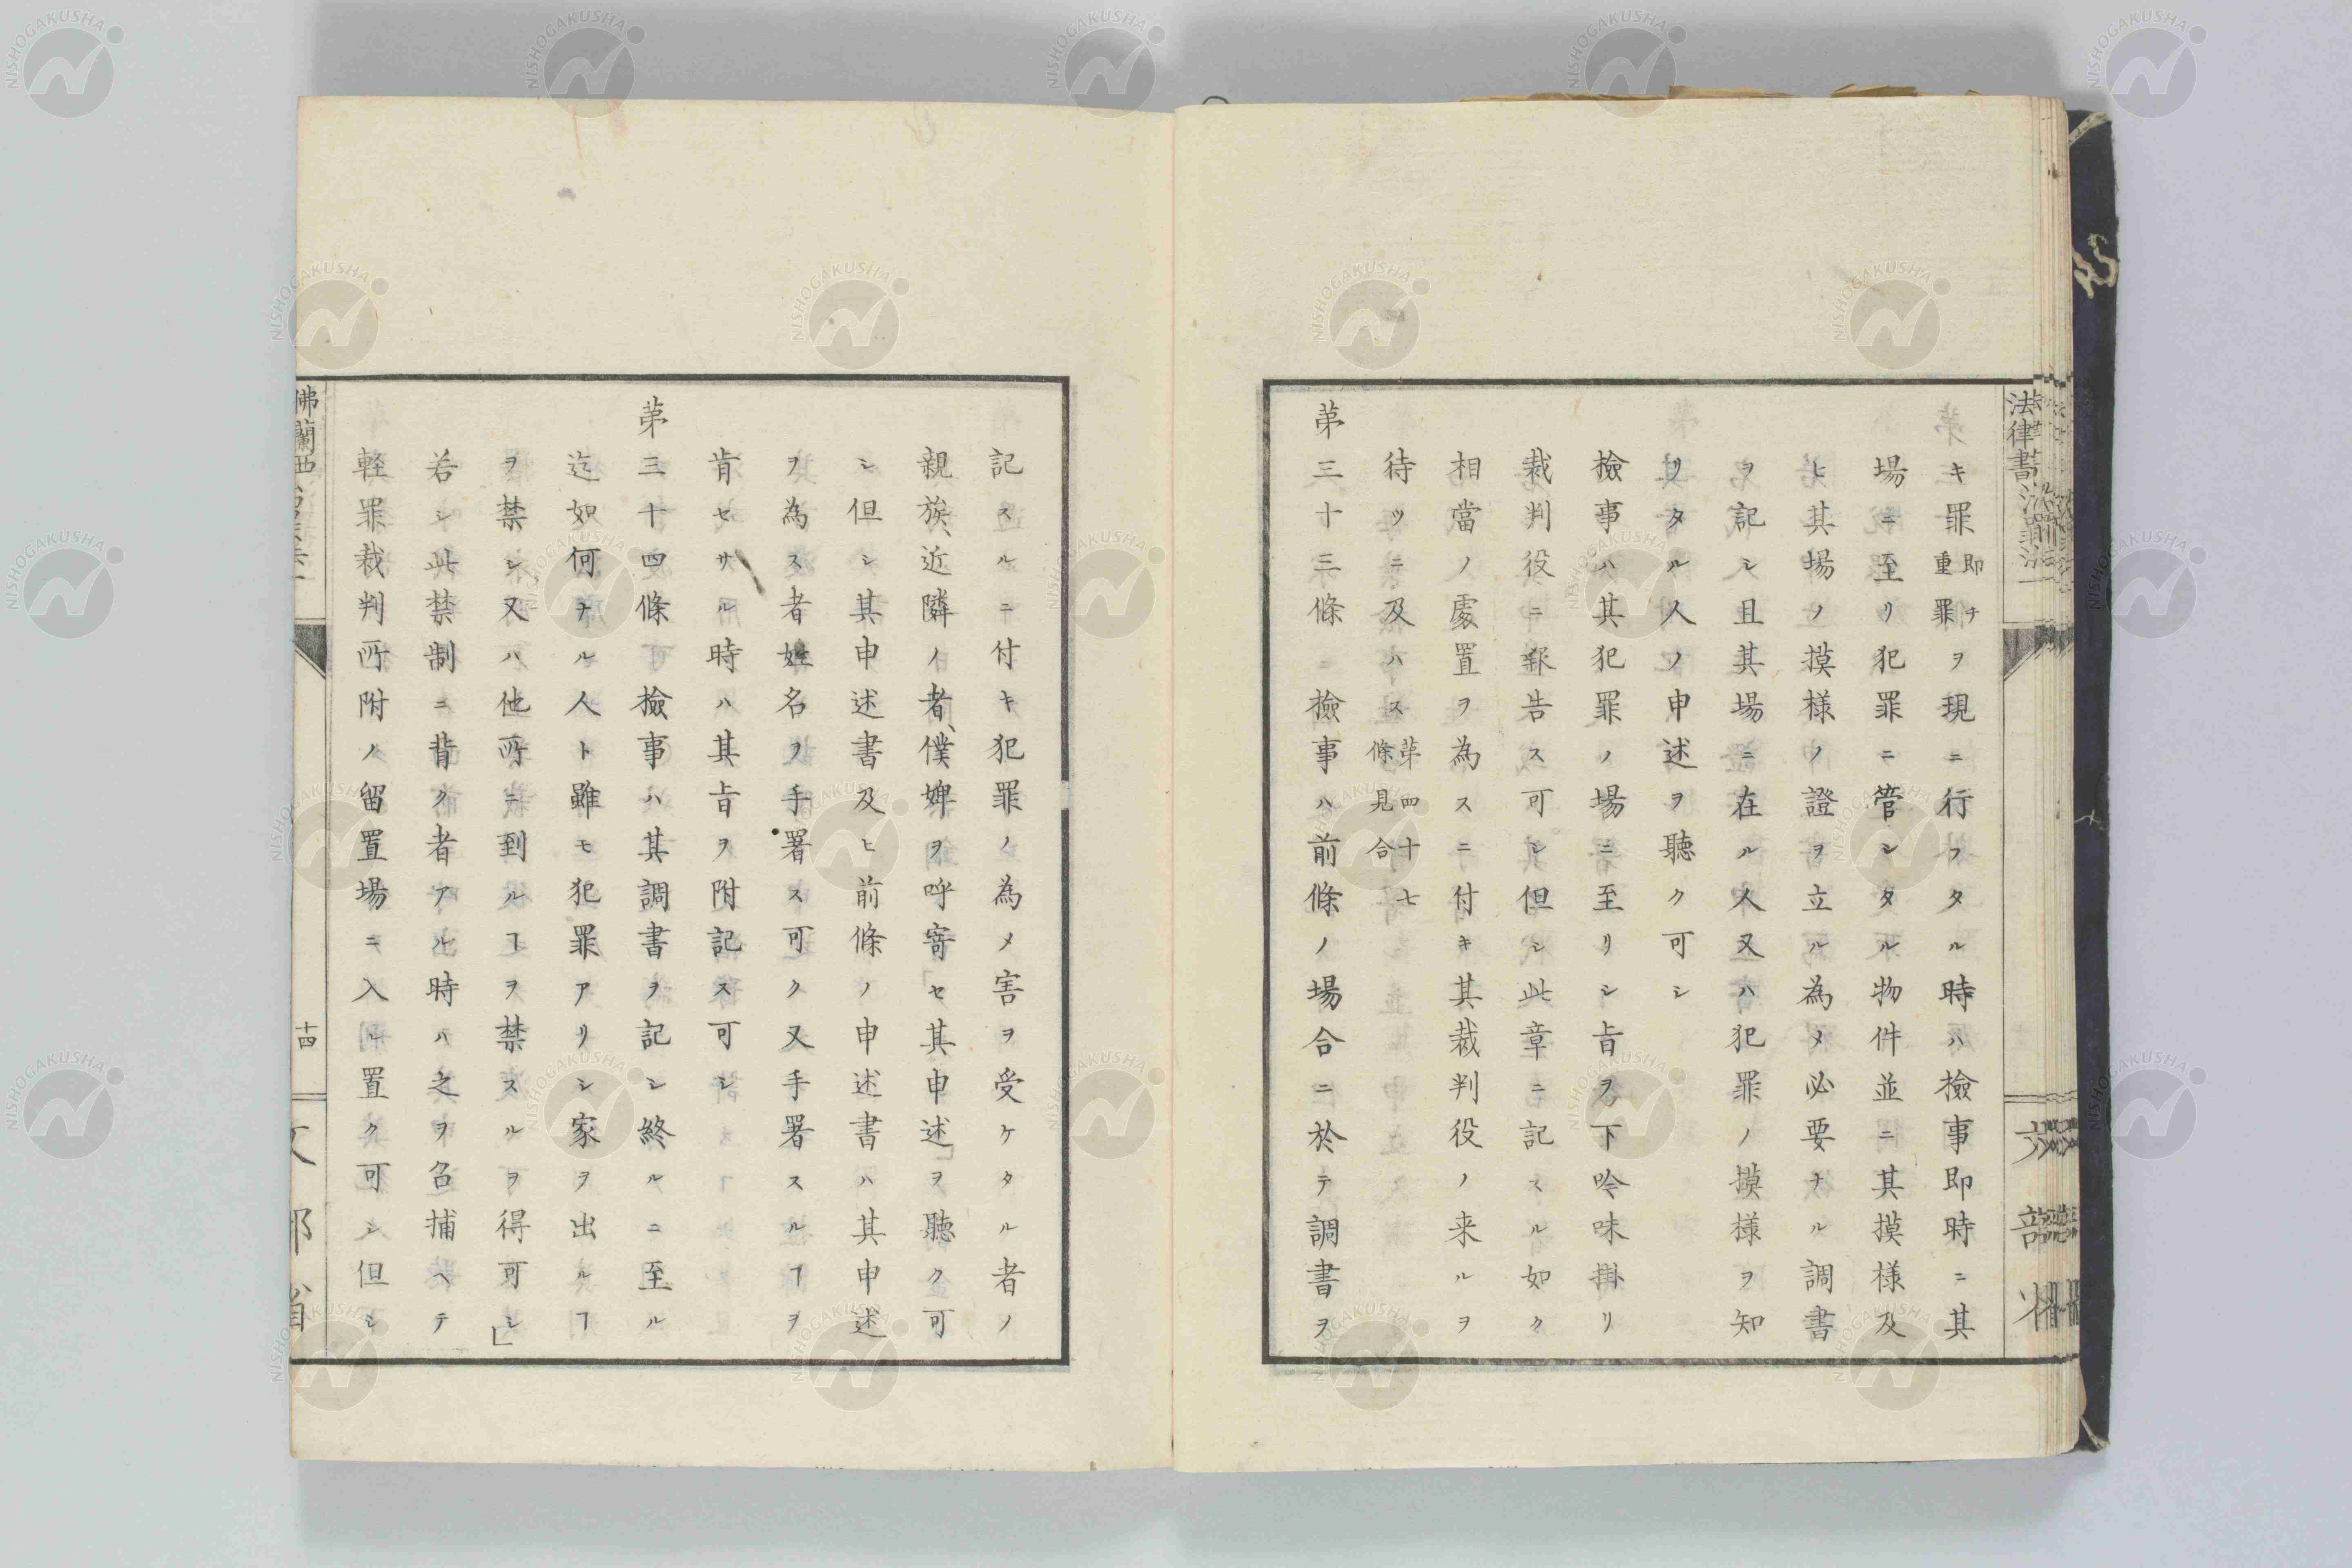 キ罪即チ重罪ヲ現ニ行フタル時ハ檢事即時ニ其
場ニ至リ犯罪ニ管シタル物件並ニ其摸様及
ヒ其場ノ摸様ノ證ヲ立ル為メ必要ナル調書
ヲ記シ且其場ニ在ル人又ハ犯罪ノ摸様ヲ知
リタル人ノ申述ヲ聽ク可シ
檢事ハ其犯罪ノ場ニ至リシ旨ヲ下吟味掛リ
裁判役ニ報告ス可シ但シ此章ニ記スル如ク
相當ノ處置ヲ為スニ付キ其裁判役ノ来ルヲ
待ツニ及ハス第四十七條見合
第三十三條 檢事ハ前條ノ場合ニ於テ調書ヲ
記スルニ付キ犯罪ノ為メ害ヲ受ケタル者ノ
親族、近隣ノ者、僕婢ヲ呼寄セ其申述ヲ聽ク可
シ但シ其申述書及ヒ前條ノ申述書ハ其申述
ヲ為ス者姓名ヲ手署ス可ク又手署スルヿヲ
肯セサル時ハ其旨ヲ附記ス可シ
第三十四條 檢事ハ其調書ヲ記シ終ルニ至ル
迄如何ナル人ト雖モ犯罪アリシ家ヲ出ルヿ
ヲ禁シ又ハ他所ニ到ルヿヲ禁スルヲ得可シ」
若シ此禁制ニ背ク者アル時ハ之ヲ召捕ヘテ
軽罪裁判所附ノ留置場ニ入レ置ク可シ但シ
佛蘭西
十四
文部省
法律書
NISHOGAKUSHA